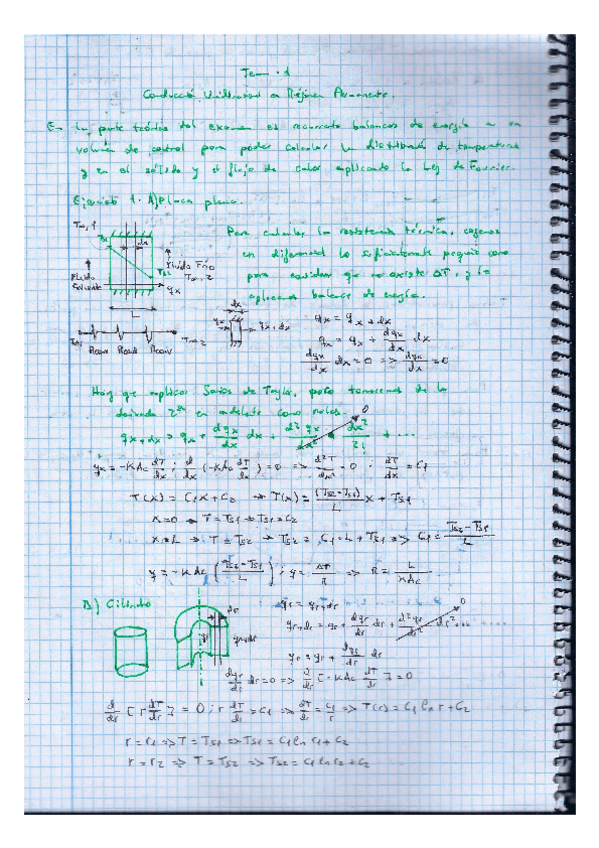 Tema 1
Conducció Unidireccional en Régimen Permanente.
En la parte teórica del examen es recurrente balances de energía a un
volumen de control para poder calcular la distribución de temperaturas
y en el sólido y el flujo de calor aplicando la ley de Fourier.
Ejemplo 1. A) Placa plana.
T∞,1
Ts1
dx
Ts2
Fluido Frío
T∞,2
Fluido
Caliente
qx
L
Para calcular la resistencia térmica, cogemos
un diferencial lo suficientemente pequeño como
para considerar que no existe ΔT, y le
aplicamos balance de energía.
Rconv Rcond Rconv
T∞2
dx
qx+dx
qx = qx+dx
qx = qx + dqx/dx dx
dqx/dx dx = 0 => dqx/dx = 0
Hay que aplicar Series de Taylor, pero tomaremos de la
derivada 2ª en adelante como nulos.
qx+dx = qx + dqx/dx dx + d²qx/dx² · dx²/2! + ...
0
qx = -KAc dT/dx ; d/dx (-KAc dT/dx) = 0 => d²T/dx² = 0 · dT/dx = C1
T(x) = C1x + C2 → T(x) = (Ts2-Ts1)/L x + Ts1
x=0 → T = Ts1 → Ts1 = C2
x=L → T = Ts2 → Ts2 = C1·L + Ts1 => C1 = Ts2-Ts1/L
q = -KAc (Ts2-Ts1/L) ; q = ΔT/R => R = L/KAc
B) Cilindro
dr
qr
qr+dr
qr = qr+dr
qr+dr = qr + dqr/dr dr + d²qr/dr² ...
0
qr = qr + dqr/dr dr
dqr/dr dr = 0 => d/dr [-KAc dT/dr] = 0
d/dr [r dT/dr] = 0 ; r dT/dr = C1 => dT/dr = C1/r => T(r) = C1 ln r + C2
r = r1 => T = Ts1 => Ts1 = C1 ln r1 + C2
r = r2 => T = Ts2 => Ts2 = C1 ln r2 + C2